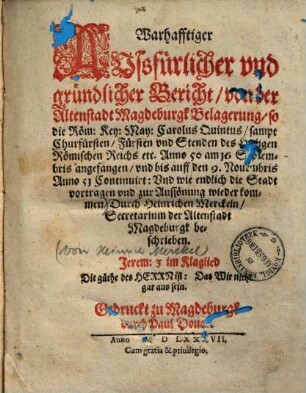 Warhafftiger
Aussfürlicher vnd
gründlicher Bericht / von der
Altenstadt Magdeburgk Belagerung / so
die Röm: Key: May: Carolus Quintus / sampt
Churfürsten / Fürsten vnd Stenden des
Römischen Reichs etc. Anno 50 am
angefangen / vnd bis auff den 9. Nouembris
Anno 51 Continuirt: Vnd wie endlich die Stadt
vortragen vnd zur Aussönung wieder kom-
men / Durch Heinrichen Merckeln /
Secretarium der Altenstadt
Magdeburgk be-
schrieben.
(von Heinrich Merckel)
Jerem: 3 im Klaglied
Die güthe des HERRN ist: Das Wir nicht
gar aus sein.
Gedruckt zu Magdeburgk
durch Paul
Anno
Cum gratia & priuilegio.